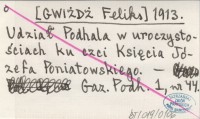 [GWIŻDŻ Feliks] 1913.
Udział Podhala w uroczysto-
ściach ku czci Księcia Jó-
zefa Poniatowskiego. –
Gaz. Podh. 1, nr 44.